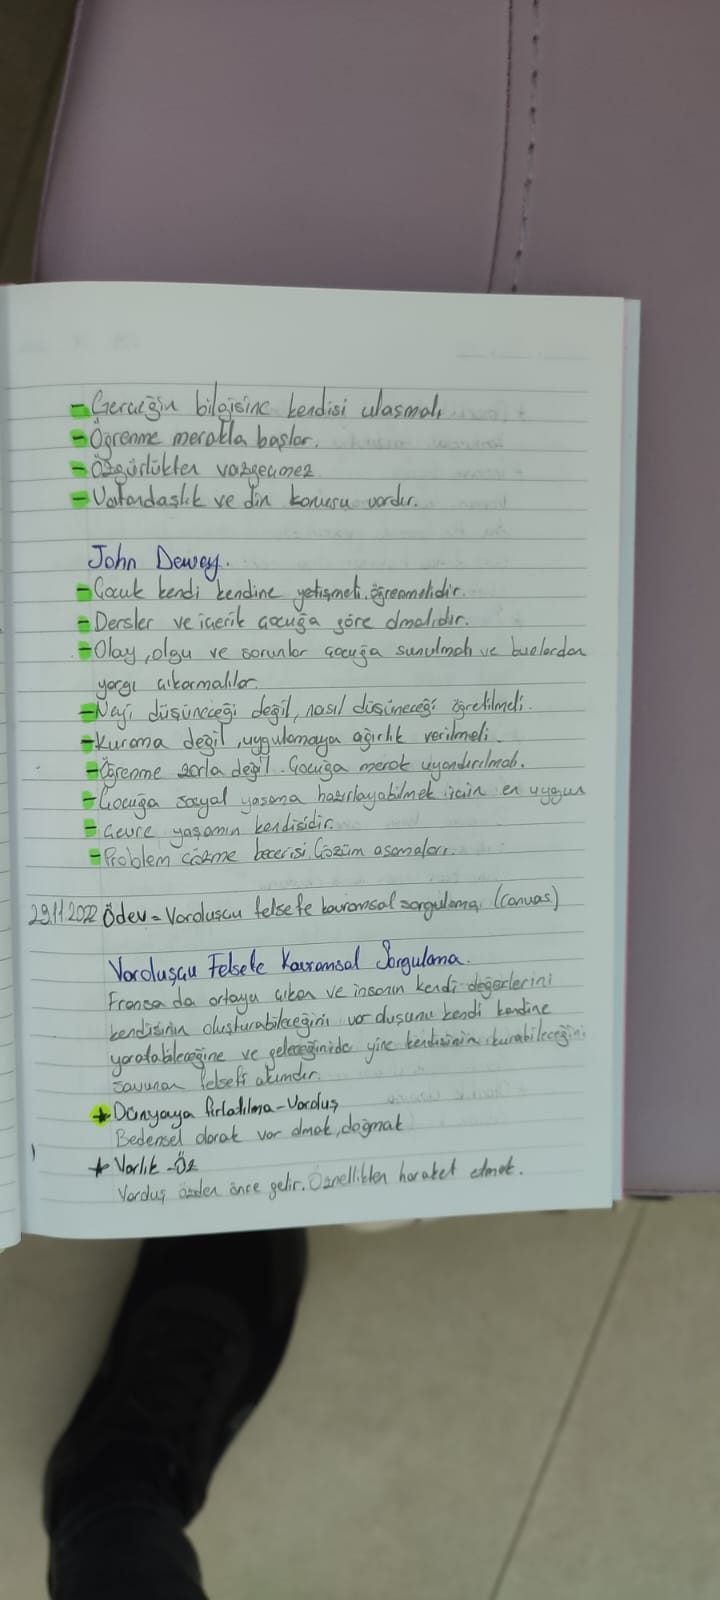 - Gerçeğin bilgisine kendisi ulaşmalı
- Öğrenme merakla başlar.
- Özgürlükten vazgeçmez
- Vatandaşlık ve din konusu vardır.
John Dewey.
- Çocuk kendi kendine yetişmeli, öğrenmelidir.
- Dersler ve içerik çocuğa göre olmalıdır.
- Olay, olgu ve sorunlar çocuğa sunulmalı ve bunlardan
yargı çıkarmalılar.
- Neyi düşüneceği değil, nasıl düşüneceği öğretilmeli.
- Kurama değil, uygulamaya ağırlık verilmeli.
- Öğrenme zorla değil. Çocuğa merak uyandırılmalı.
- Çocuğa sosyal yaşama hazırlayabilmek için en uygun
- Çevre yaşamın kendisidir.
- Problem çözme becerisi Çözüm aşamaları.
29.11.2022 Ödev = Varoluşçu felsefe kavramsal sorgulama (canvas)
Varoluşçu Felsefe Kavramsal Sorgulama.
Fransa da ortaya çıkan ve insanın kendi değerlerini
kendisinin oluşturabileceğini var oluşunu kendi kendine
yaratabileceğine ve geleceğinide yine kendisinin kurabileceğini
savunan felsefi akımdır.
★ Dünyaya fırlatılma - Varoluş
Bedensel olarak var olmak, doğmak
★ Varlık - Öz
Varoluş özden önce gelir. Öznellikten haraket etmek.